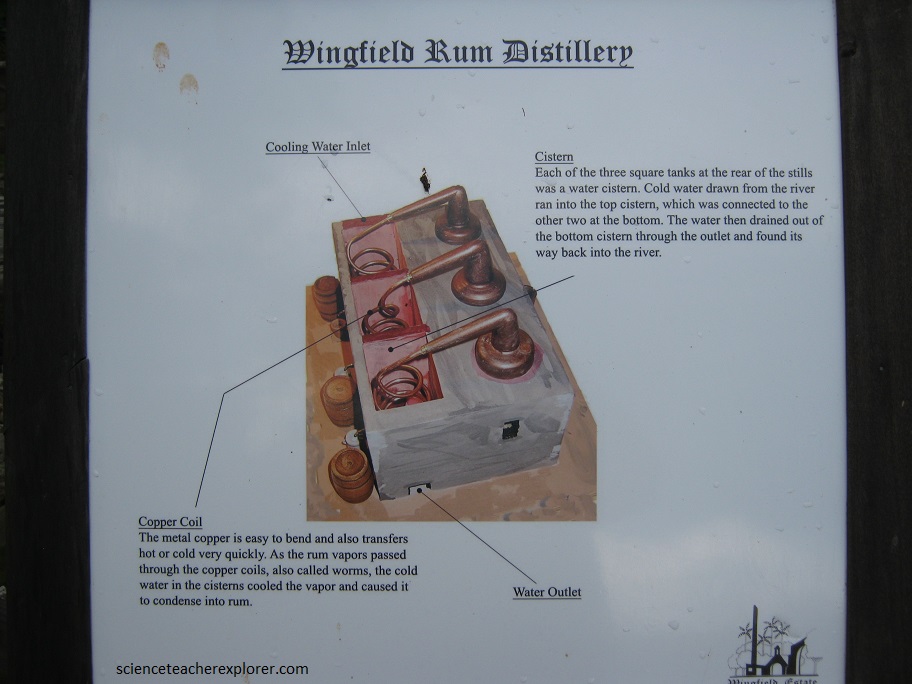 Wingfield Rum Distillery
Cooling Water Inlet
Cistern
Each of the three square tanks at the rear of the stills
was a water cistern. Cold water drawn from the river
ran into the top cistern, which was connected to the
other two at the bottom. The water then drained out of
the bottom cistern through the outlet and found its
way back into the river.
Copper Coil
The metal copper is easy to bend and also transfers
hot or cold very quickly. As the rum vapors passed
through the copper coils, also called worms, the cold
water in the cisterns cooled the vapor and caused it
to condense into rum.
Water Outlet
scienceteacherexplorer.com
Wingfield Estate